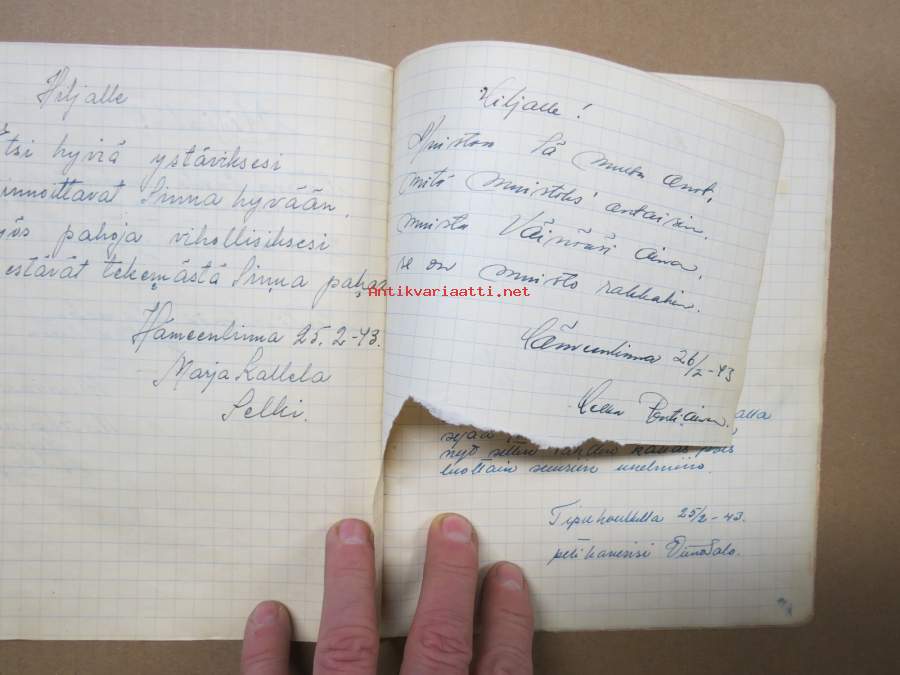 Hiljalle
tsi hyviä ystäviksesi
innoittavat Sinua hyvään.
ös pahoja vihollisiksesi
estävät tekemästä Sinua pahaa
Hämeenlinna 25.2-43.
Marja Kallela
Selki.
Hiljalle!
Muiston Sä multa anot,
mitä muistoks' antaisin.
muista Väinöäsi aina,
se on muisto rakkahin.
Hämeenlinna 26/2-43
alla
nyt
luottain suureen unelmiis.
Tipuhoulella 25/2-43.
petikaverisi
Antikvariaatti.net